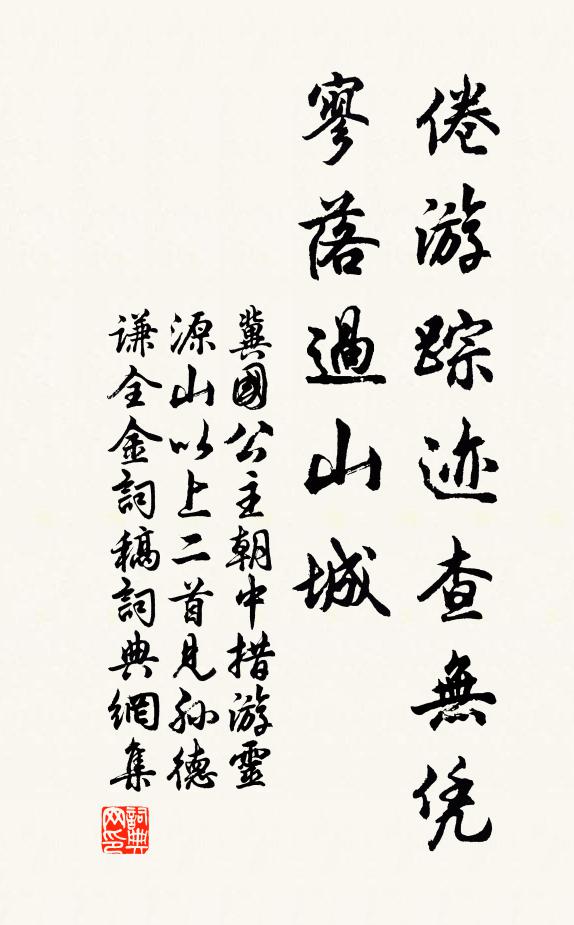 倦游踪迹查無凭
寥落過山城
冀國公主朝中措游靈
源山以上二首見孙德
谦全金詞稿詞典網集
詞典网印